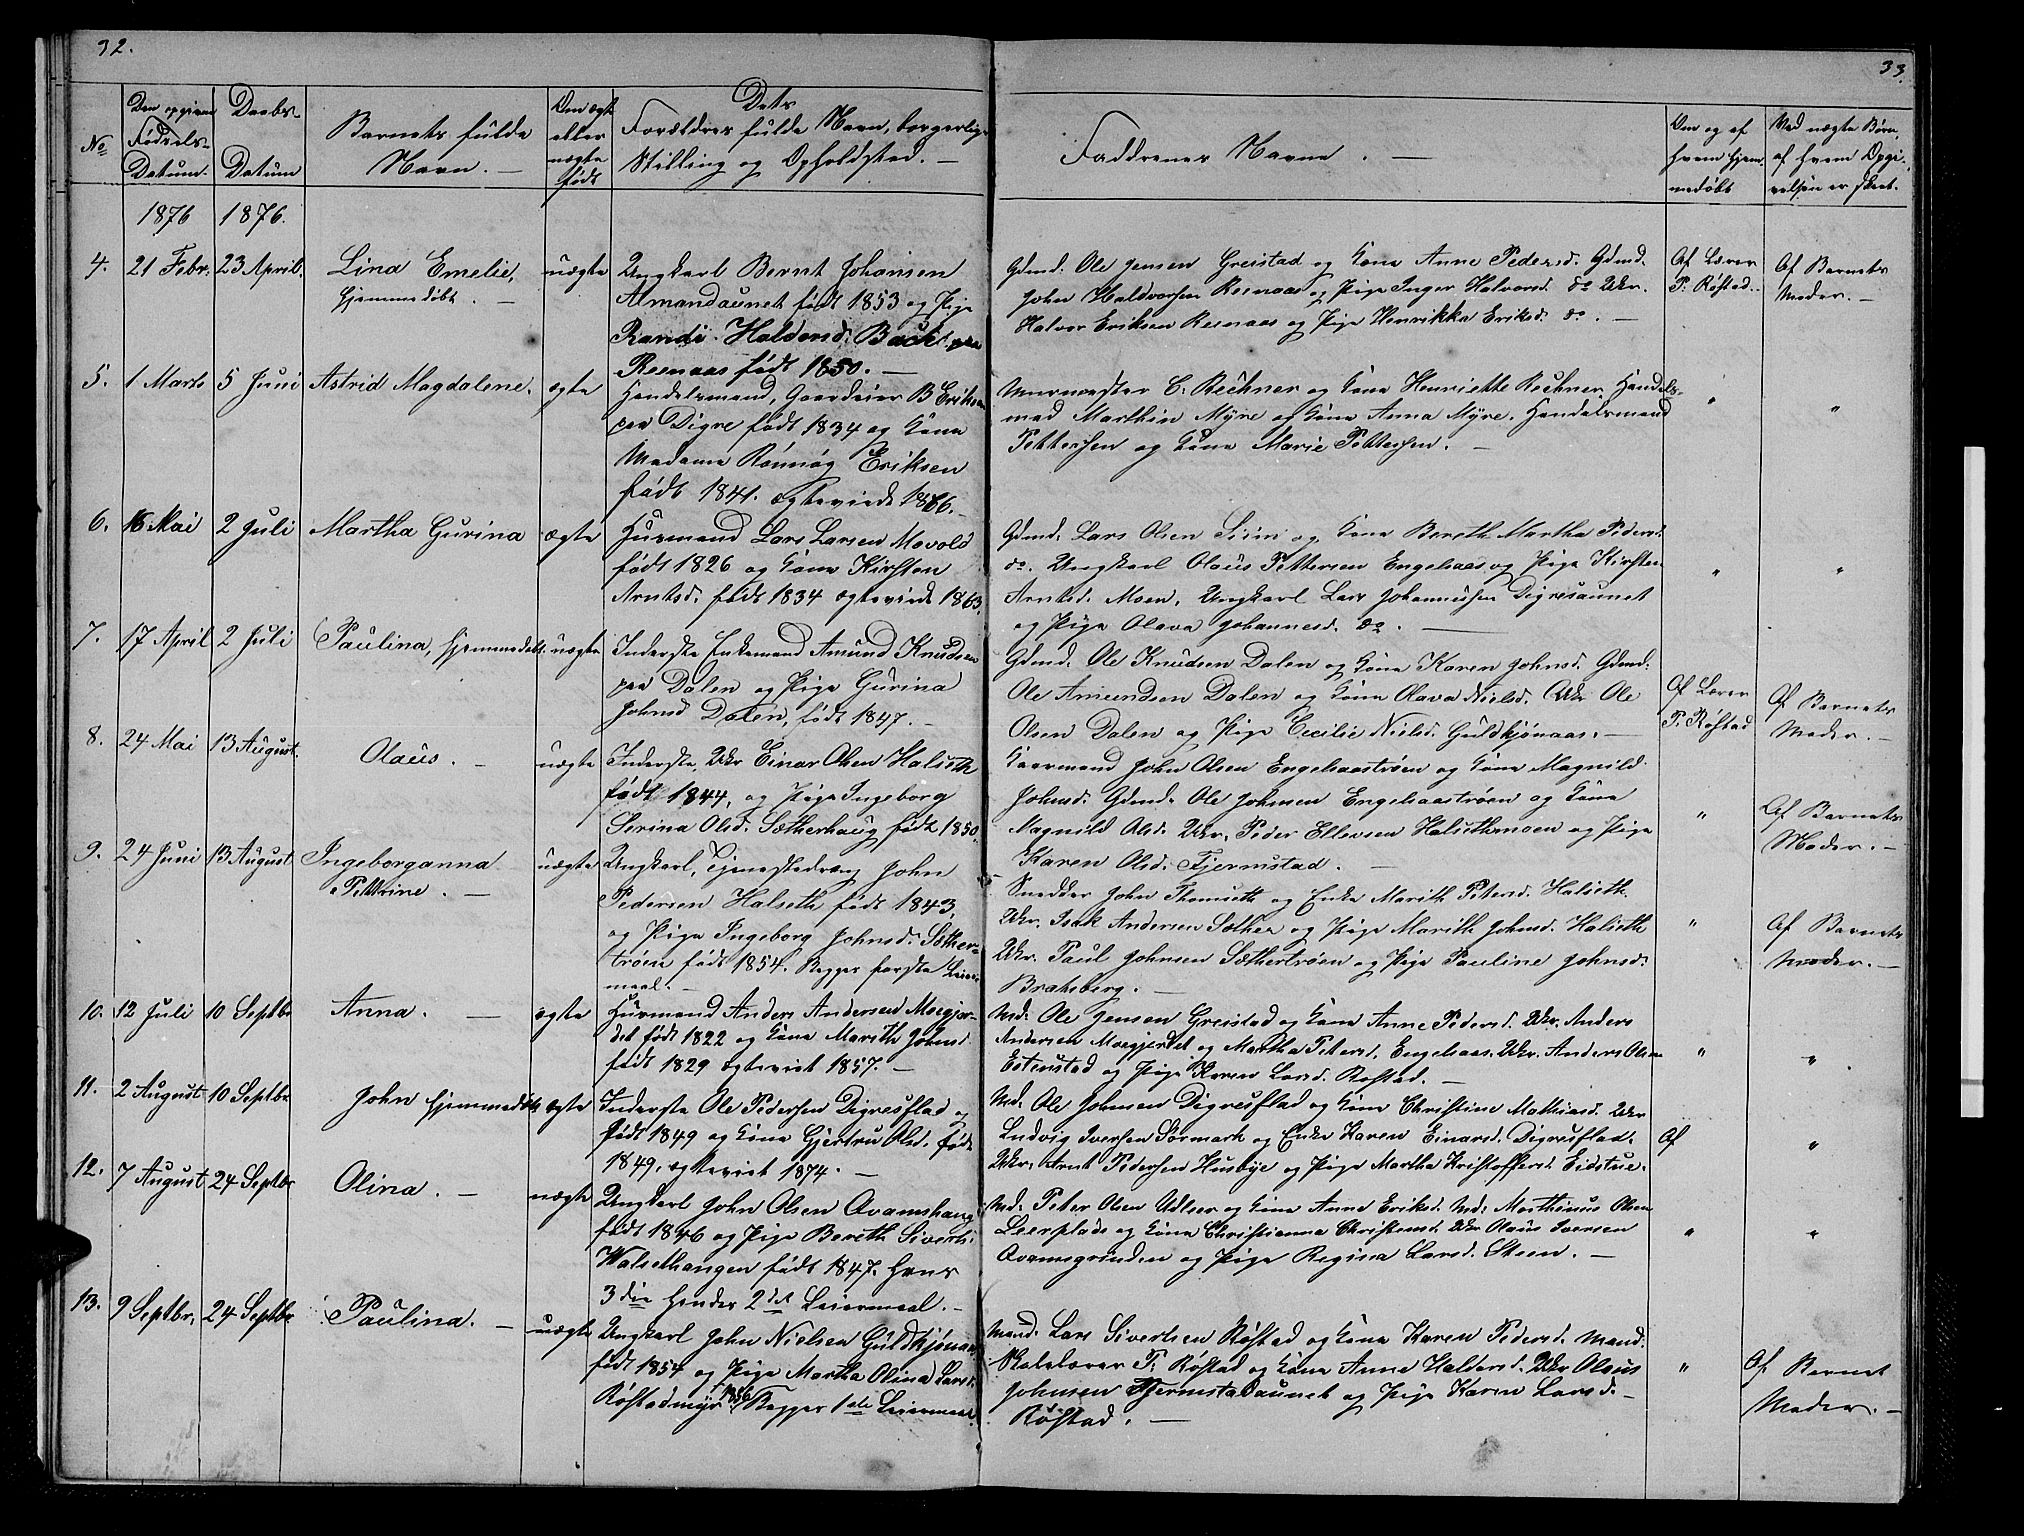 32.
No
Den opgivne Fødsels-Datum.
Daabs-Datum
Barnets fulde Navn. —
Om ægte eller uægte født
Dets Forældres fulde Navn, borgerlig Stilling og Opholdsted. —
1876 1876.
4. 21 Febr. 23 April. Lina Emelie, uægte Ungkarl Bernt Johansen
hjemmedøbt. — Almaasaunet født 1853 og Pige
Randi Haldorsd. Bach paa
Reenaas født 1850. —
5. 1 Marts 5 Juni Astrid Magdalene. ægte Handelsmand, Gaardeier B Eriksen
paa Digre født 1834 og Kone
Madame Rønnøg Eriksen
født 1841. ægteviede 1866. —
6. 16 Mai 2 Juli Martha Gurina ægte Huusmand Lars Larsen Movold
født 1826 og Kone Kirsten
Arntsd. født 1834 ægteviede 1863.
7. 17 April 2 Juli Paulina, hjemmedøbt. uægte Inderste Enkemand Amund Knudsen
paa Dalen og Pige Gurina
Johnsd Dalen, født 1847. —
8. 24 Mai 13 August. Olaus. — uægte Inderste, Ukr Einar Olsen Halseth
født 1844, og Pige Ingeborg
Serina Olsd. Sætherhaug født 1850.
9. 24 Juni 13 August Ingeborganna uægte Ungkarl, Tjenestedreng John
Pettrine. — Pedersen Halseth født 1843,
og Pige Ingeborg Johnsd. Sæther-
trøen født 1854. Begges første Leier-
maal. —
10. 12 Juli 10 Septbr Anna. — ægte Huusmand Anders Andersen Moegjer-
det født 1822 og Kone Marith Johnsd
født 1829 ægteviet 1857. —
11. 2 August 10 Septbr. John hjemmedøbt ægte Inderste Ole Pedersen Digresflad og
født 1849 og Kone Gjertru Olsd. født
1849, ægteviet 1874. —
12. 7 August 24 Septbr Olina. — uægte Ungkarl John Olsen Qvamshaug
født 1846 og Pige Bereth Siverts.
Walsethaugen født 1847. Hans
3die Hendes 2det Leiermaal. —
13. 9 Septbr. 24 Septbr Paulina. — uægte Ungkarl John Nielsen Guldkjønaas
født 1854 og Pige Martha Olina Larsd.
Røstadmyr Begges 1ste Leiermaal
33.
Faddrenes Navne. —
Om og af hvem hjemmedøbt
Ved uægte Børn, af hvem Opgivelsen er skeet.
Gdmd. Ole Jensen Greistad og Kone Anne Pedersd. Gdmd. Af Lærer Af Barnets
John Haldorsen Reenaas og Pige Inger Halvorsd. do Ukr. P. Røstad. Moder. —
Halvor Eriksen Reenaas og Pige Henrikka Eriksd. do. —
Muurmester C. Rechner og Kone Henriette Rechner, Handels- " "
mand Marthin Myre og Kone Anna Myre. Handelsmand
Pettersen og Kone Marie Pettersen. —
Gdmd. Lars Olsen Siim og Kone Bereth Martha Pedersd.
do. Ungkarl Olaus Pettersen Engelsaas og Pige Kirsten " "
Arntsd. Moen, Ungkarl Lars Johannessen Digresaunet
og Pige Olava Johannesd. do. —
Gdmd. Ole Knudsen Dalen og Kone Karen Johnsd. Gdmd.
Ole Amundsen Dalen og Kone Olava Nielsd. Ukr Ole Af Lærer Af Barnets
Olsen Dalen og Pige Cecilie Nielsd. Guldkjønaas. — P. Røstad Moder. —
Gaarmand John Olsen Engelsaastrøen og Kone Magnild
Johnsd. Gdmd. Ole Johnsen Engelsaastrøen og Kone " Af Barnets
Magnild Olsd. Ukr. Peder Ellevsen Halsethmoen og Pige Moder. —
Karen Olsd. Fjermstad. —
Snedker John Thomseth og Enke Marith Petersd. Halseth.
Ukr. Isak Andersen Sæther og Pige Marith Johnsd. Halseth " Af Barnets
Ukr. Paul Johnsen Sæthertrøen og Pige Pauline Johnsd. Moder. —
Bratsberg. —
Md. Ole Jensen Greistad og Kone Anne Pedersd. Ukr. Anders
Andersen Moegjerdet og Martha Petersd. Engelsaas. Ukr. Anders Olsen " "
Estenstad og Pige Karen Larsd. Røstad. —
Md. Ole Johnsen Digresflad og Kone Christine Mathiasd. Ukr
Ludvig Iversen Sørmark og Enke Karen Einarsd. Digresflad. Af "
Ukr. Arnt Pedersen Husbye og Pige Martha Kristoffersd. Eidstue.
Md. Peter Olsen Udlser og Kone Anne Eriksd. Md. Morthinus Olsen
Leerplads og Kone Christianna Christensd. Ukr Olaus Iversen " "
Qvamsgrinden og Pige Regina Larsd. Steen. —
Mand. Lars Sivertsen Røstad og Kone Karen Pedersd. Mand.
Skolelærer P. Røstad og Kone Anne Haldorsd. Ukr Olaus " Af Barnet
Johnsen Fjermstadaunet og Pige Karen Larsd. — Moder. —
Røstad. —